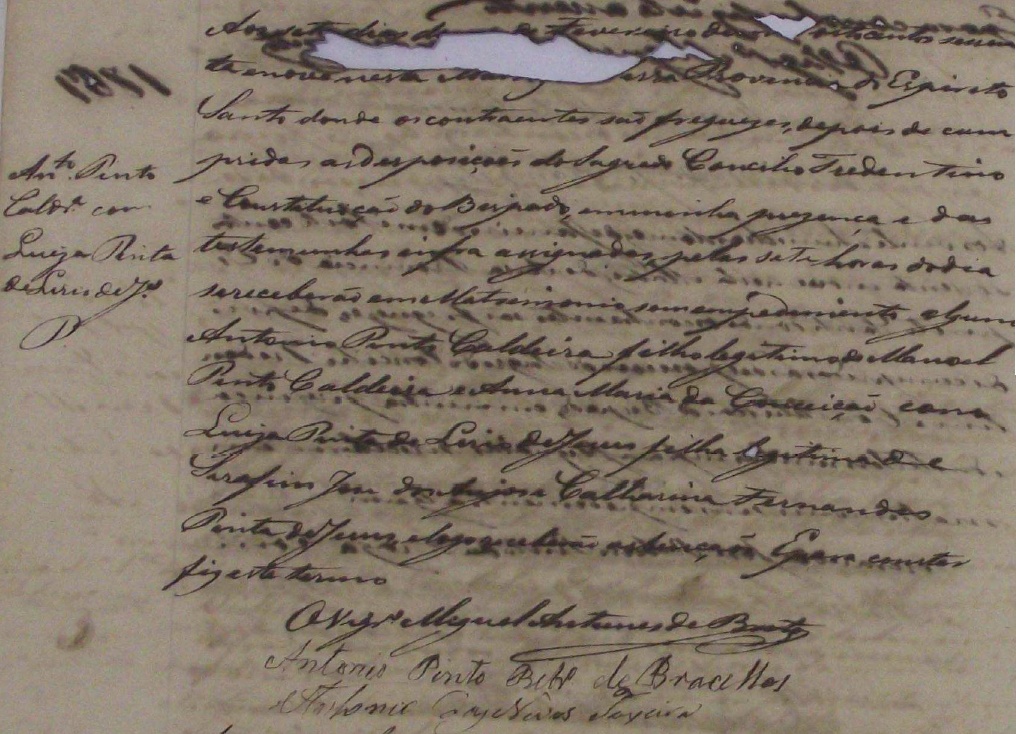 Ant.º Pinto
Cald.ª com
Luiza Pinta
de Liris de J.s
P.
Aos sete dias de Fevereiro de oitocentos sessen
ta e nove nesta Provincia do Espirito
Santo donde os contraentes são freguezes, depois de cum
pridas as desposições do Sagrado Concilio Tredentino
e Constituição do Beispado, em minha prezença e das
testemunhas infra assignadas, pelas sete horas do dia
se receberão em Matrimonio sem empedimento algum
Antonio Pinto Caldeira filho legitimo de Manoel
Pinto Caldeira e Anna Maria da Conceição, com
Luiza Pinta de Liris de Jesus filha legitima de
Serafim Jose dos Anjos e Catharina Fernandes
Pinta de Jesus, e logo E para constar
fiz este termo
O Vigr.º Miguel Antunes de Brito
Antonio Pinto de Bracellos
Antonio Neves Teixeira